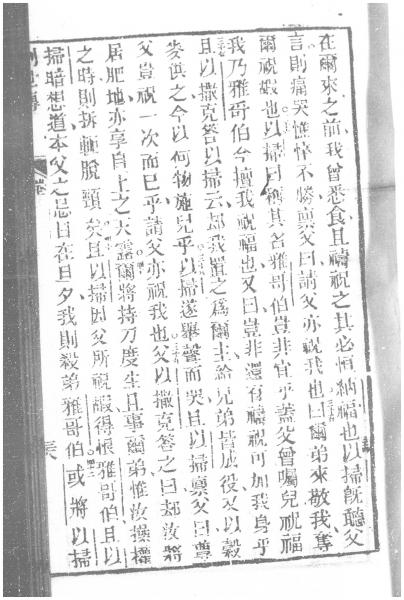 在爾來之前我曾悉食且禱祝之其必恒納福也以掃旣聽父
言則痛哭憔悴不勝稟父曰請父亦祝我也曰爾弟來敬我奪
爾祝嘏也以掃曰稱其名雅哥伯豈非宜乎蓋父曾囑兒祝福
我乃雅哥伯今擅我祝福也又曰豈非還有禱祝可加我身乎
且以撒克答以掃云却我置之爲爾主給兄弟皆成役又以穀
麥供之今以何物施兒乎以掃遂舉聲而哭且以掃稟父曰尊
父豈祝一次而已乎請父亦祝我也父以撒克答之曰却汝將
居肥地亦享自上之天露爾將持刀度生且事爾弟惟汝操權
之時則拆軛脫頸矣且以掃因父所祝嘏得恨雅哥伯且以
掃暗想道本父之忌日在旦夕我則殺弟雅哥伯或將以掃